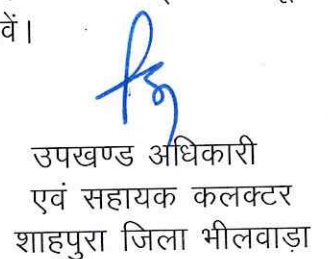 वें।
उपखण्ड अधिकारी
एवं सहायक कलक्टर
शाहपुरा जिला भीलवाड़ा